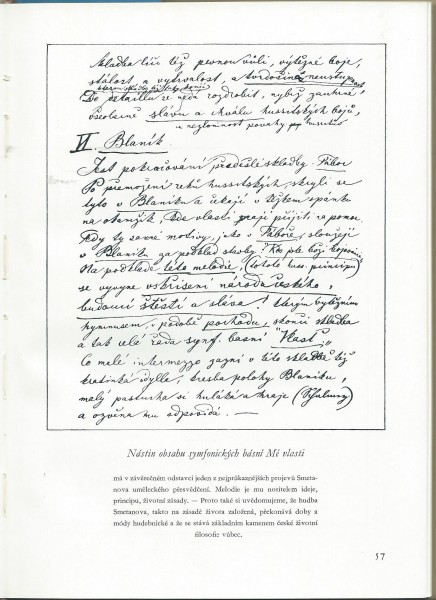 skladba líčí též pevnou vůli, vítězné boje,
stálost a vytrvalost, a tvrdošíjnou neústupnost
Do detaillu se nedá rozdrobit, nýbrž zahrnuje
všeobecně slávu a chválu hussitských bojů,
a nezlomnost povahy husitů
VI. Blaník.
Jest pokračování předešlé skladby: Tábor
Po přemožení reků hussitských, skryli se
tyto v Blaníku a čekají v těžkém spánku
na okamžik, kde vlasti mají přijíti ku pomoci.
Tedy ty samé motivy, jako v Táboře, slouží i
v Blaníku za podklad stavby: Kdo jste boží bojovníci.
Na podkladě této melodie, (tohoto huss. principu)
se vyvine vzkříšení národa českého,
budoucí štěstí a sláva! kterým vítězným
hymnusem, v podobě pochodu, skončí skladba
a tak celé řada symf. básní "Vlast".
Co malé intermezzo zazní v této skladbě též
kratinká idylle, kresba polohy Blaníku,
malý pastucha si huláká a hraje (Schalmay)
a ozvěna mu odpovídá. —
Nástin obsahu symfonických básní Mé vlasti
má v závěrečném odstavci jeden z nejprůkaznějších projevů Smeta-
nova uměleckého přesvědčení. Melodie je mu nositelem ideje,
principu, životní zásady. — Proto také si uvědomujeme, že hudba
Smetanova, takto na zásadě života založená, překonává doby a
módy hudebnické a že se stává základním kamenem české životní
filosofie vůbec.
57